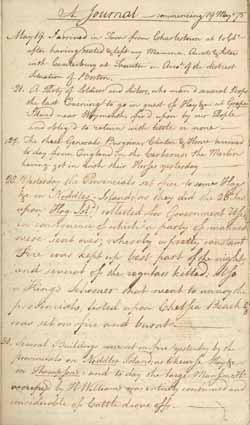 A Journal commencing 19 May 75
May 19. I arrived in Town from Charlestown at 10 Clo
after having rested & left my Mamma Aunt & Sisters
with Canterbury at Taunton on Acco. of the distrest
situation of Boston.
21. A Party of Soldiers and sailors, who man'd several Sloops
the last Evening to go in quest of Hay &c at Grape
Island near Weymouth, fir'd upon by our People
and oblig'd to return with little or none
25. The three Generals Burgoyne Clinton & Howe arrived
to day from England in the Cerberus Man
having got in both their Horse yesterday
28. Yesterday the Provincials set fire to some Hay
&c on Noddles-Island, as they did the
upon Hog Isl. collected for Government Use
in consequence of which a party of
were sent over, whereby a pretty constant
Fire was kept up best part of the night
and several of the regulars killed. Also
a Kings Schooner that went to annoy the
provincials, listed upon Chelsea Beach &
was set on fire and burnt.
30. Several Buildings were set on fire yesterday by the
provincials on Noddles Island as
on Thompsons and to day the large Mansion
occupied by H Williams was entirely consumed and
considerable of Cattle drove off.